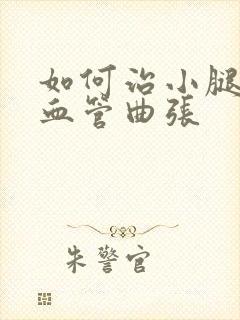 如何治小腿
血管曲張
朱警官